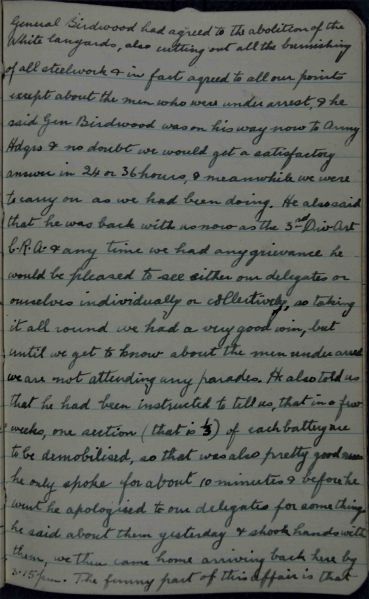 General Birdwood had agreed to the abolition of the
White lanyards, also cutting out all the burnishing
of all steelwork & in fact agreed to all our points
except about the men who were under arrest, & he
said Gen Birdwood was on his way now to Army
Hdqrs & no doubt we would get a satisfactory
answer in 24 or 36 hours, & meanwhile we were
to carry on as we had been doing. He also said
that he was back with us now as the 3rd Div Art
C.R.A. & any time we had any grievance he
would be pleased to see either our delegates or
ourselves individually or collectively, so taking
it all round we had a very good win, but
until we get to know about the men under arrest
we are not attending any parades. He also told us
that he had been instructed to tell us, that in a few
weeks, one section (that is 1/3) of each battery are
to be demobilised, so that was also pretty good
he only spoke for about 10 minutes & before he
went he apologised to our delegates for something
he said about them yesterday & shook hands with
them, we then came home arriving back here by
3.15 p.m. The funny part of this affair is that